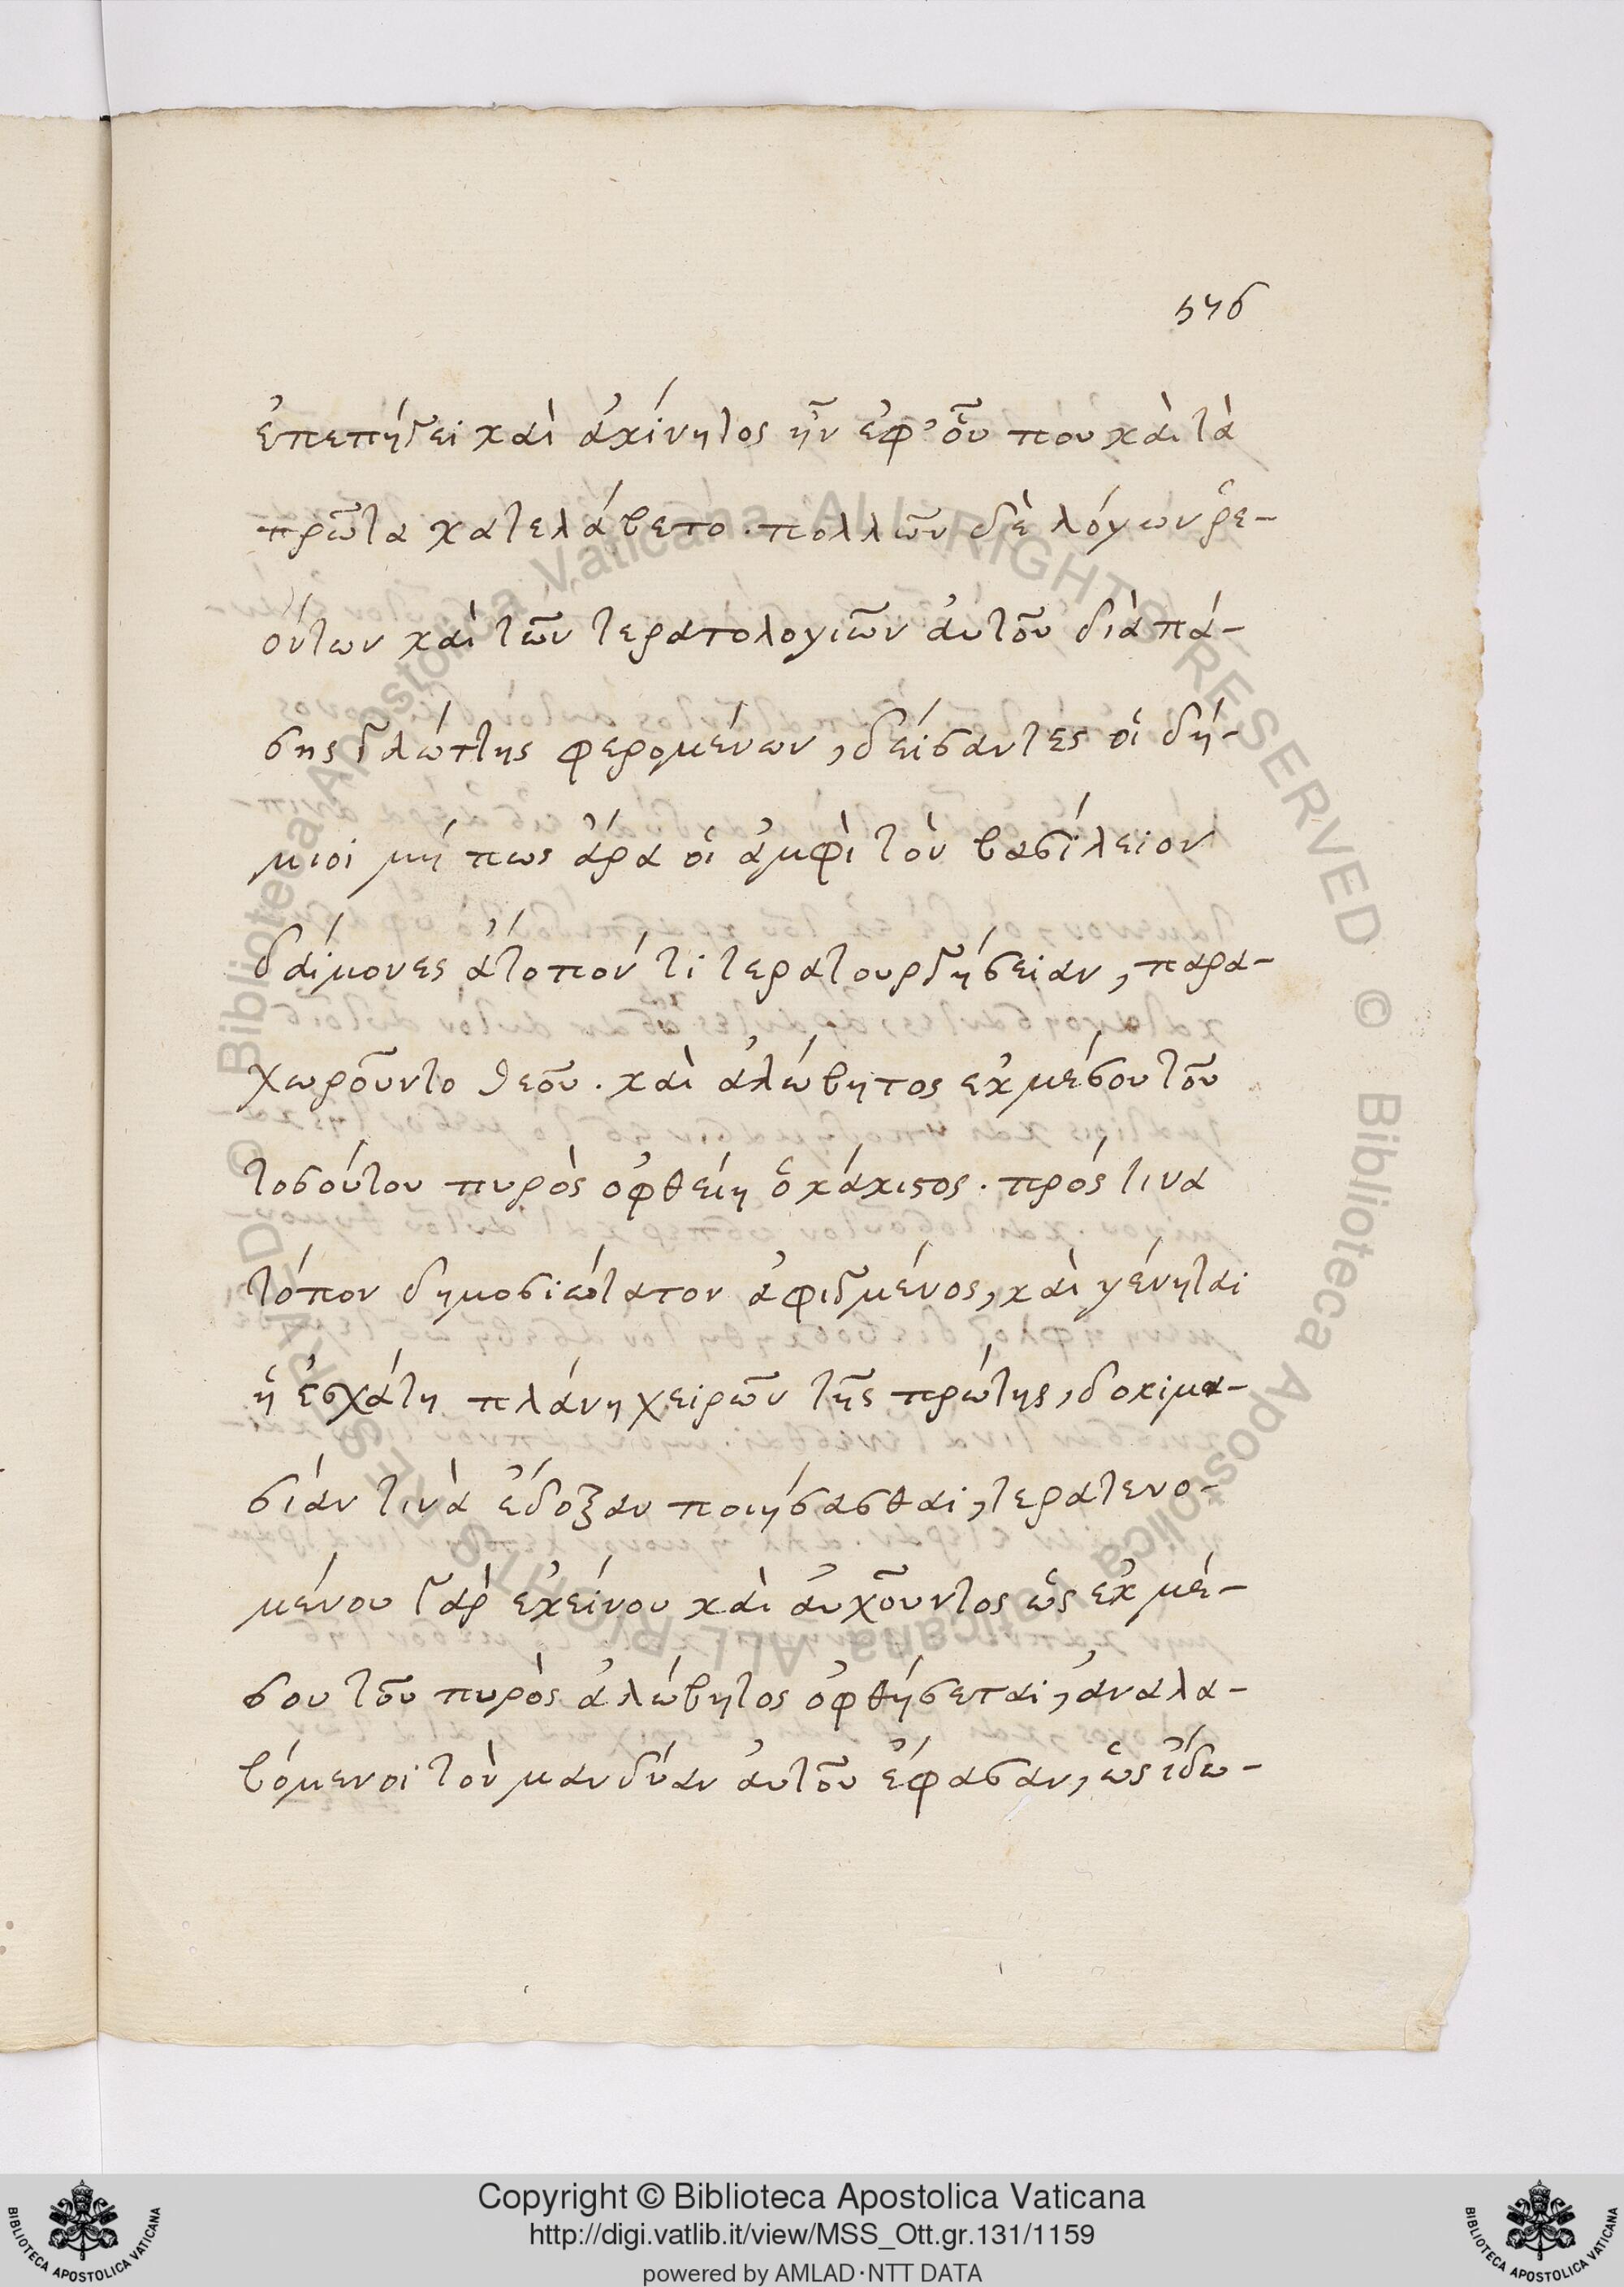 576
ἐπεπήγει καὶ ἀκίνητος ἦν ἐφ' οὗ που καὶ τὰ
πρῶτα κατελάβετο. πολλῶν δὲ λόγων ῥε-
όντων καὶ τῶν τερατολογιῶν αὐτοῦ διὰ πά-
σης γλώττης φερομένων, δείσαντες οἱ δή-
μιοι μή πως ἄρα οἱ ἀμφὶ τὸν βασίλειον
δαίμονες ἄτοπόν τι τερατουργήσειαν, παρα-
χωροῦντο θεοῦ. καὶ ἀλώβητος ἐκ μέσου τοῦ
τοσούτου πυρὸς ὀφθείη ὁ κάκιστος. πρός τινα
τόπον δημοσιώτατον ἀφιγμένος, καὶ γένηται
ἡ ἐσχάτη πλάνη χειρῶν τῆς πρώτης, δοκιμα-
σίαν τινὰ ἔδοξαν ποιήσασθαι, τερατευο-
μένου γὰρ ἐκείνου καὶ αὐχοῦντος ὡς ἐκ μέ-
σου τοῦ πυρὸς ἀλώβητος ὀφθήσεται, ἀναλα-
βόμενοι τὸν μανδύαν αὐτοῦ ἔφασαν, ὡς ἴδω-
© Biblioteca Apostolica Vaticana ALL RIGHTS RESERVED © Biblioteca Apostolica Vaticana ALL RIGHTS RESERVED
Copyright © Biblioteca Apostolica Vaticana
http://digi.vatlib.it/view/MSS_Ott.gr.131/1159
powered by AMLAD·NTT DATA
BIBLIOTECA APOSTOLICA VATICANA
BIBLIOTECA APOSTOLICA VATICANA